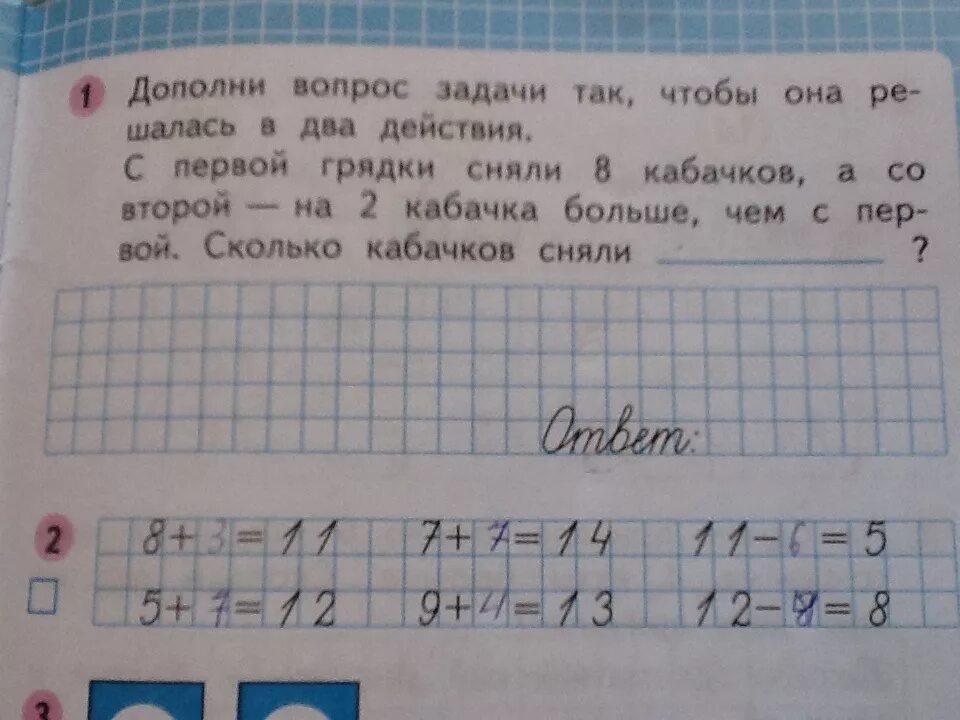 1 Дополни вопрос задачи так, чтобы она ре-
шалась в два действия.
С первой грядки сняли 8 кабачков, а со
второй — на 2 кабачка больше, чем с пер-
вой. Сколько кабачков сняли ____________ ?
Ответ:
2 8+3=11 7+7=14 11-6=5
5+7=12 9+4=13 12-=8
3